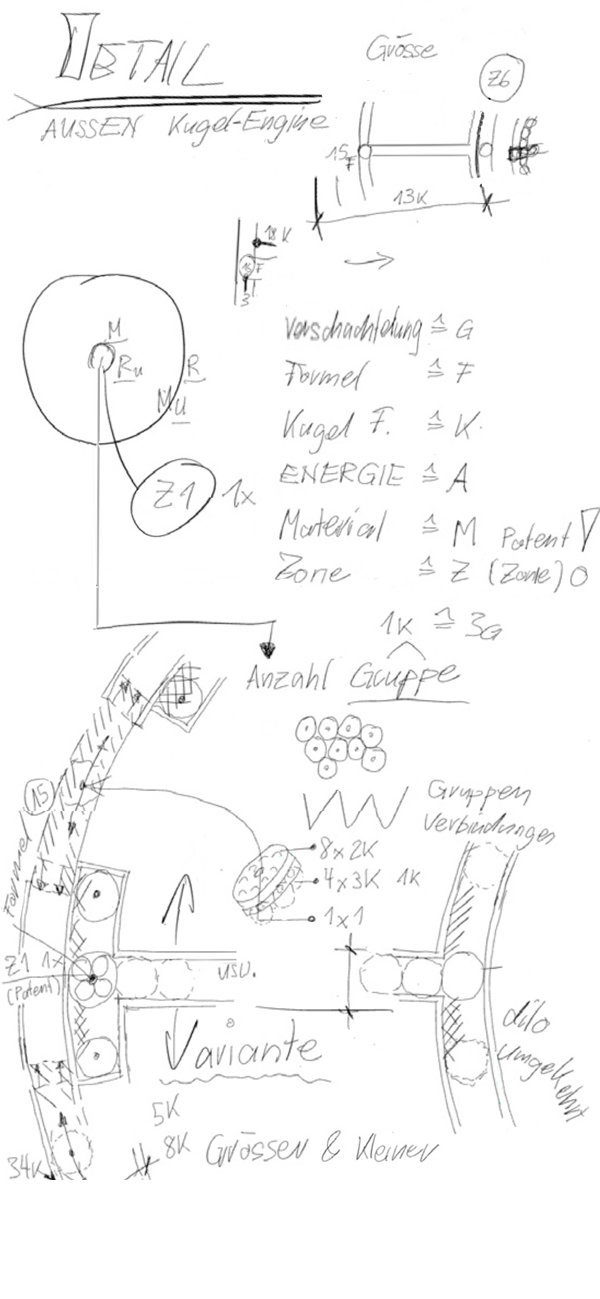 DETAIL
Grösse
Z6
AUSSEN Kugel-Engine
15
F
13K
18 K
15 F
3
M
Ru
R
Mu
Z1 1x
Verschachtelung ≙ G
Formel ≙ F
Kugel F. ≙ K
ENERGIE ≙ A
Material ≙ M Patent
Zone ≙ Z (Zone) O
1K ≙ 3G
Anzahl Gruppe
Gruppen
Verbindungen
15
Formel
8x2K
4x3K 1K
1x1
Z1 1x
(Patent)
usw.
Variante
dito
umgekehrt
5K
8K Grösser & Kleiner
34K